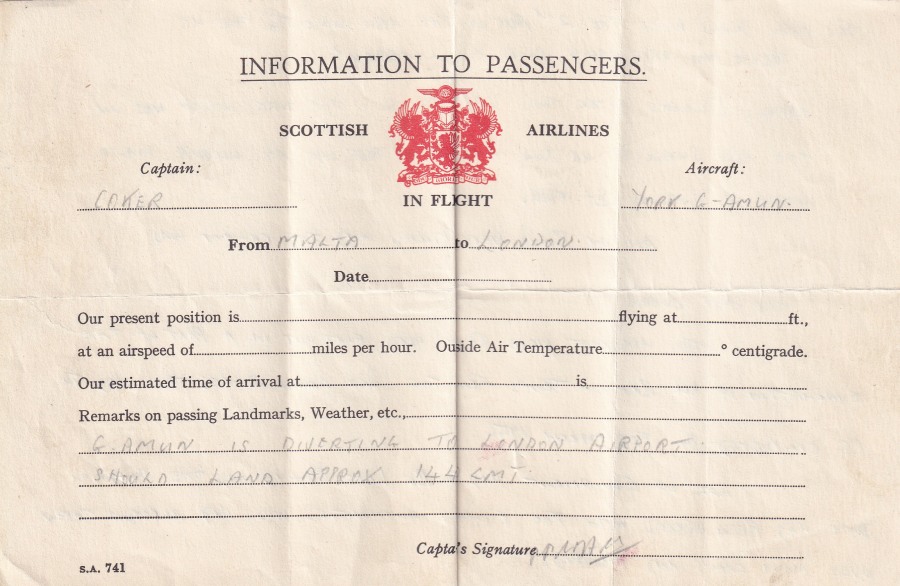 INFORMATION TO PASSENGERS.
SCOTTISH AIRLINES
Captain: Aircraft:
COKER YORK G-AMUN.
IN FLIGHT
From MALTA to LONDON.
Date
Our present position is flying at ft.,
at an airspeed of miles per hour. Ouside Air Temperature ° centigrade.
Our estimated time of arrival at is
Remarks on passing Landmarks, Weather, etc.,
G.AMUN IS DIVERTING TO LONDON AIRPORT.
SHOULD LAND APPROX GMT.
Capta's Signature
S.A. 741